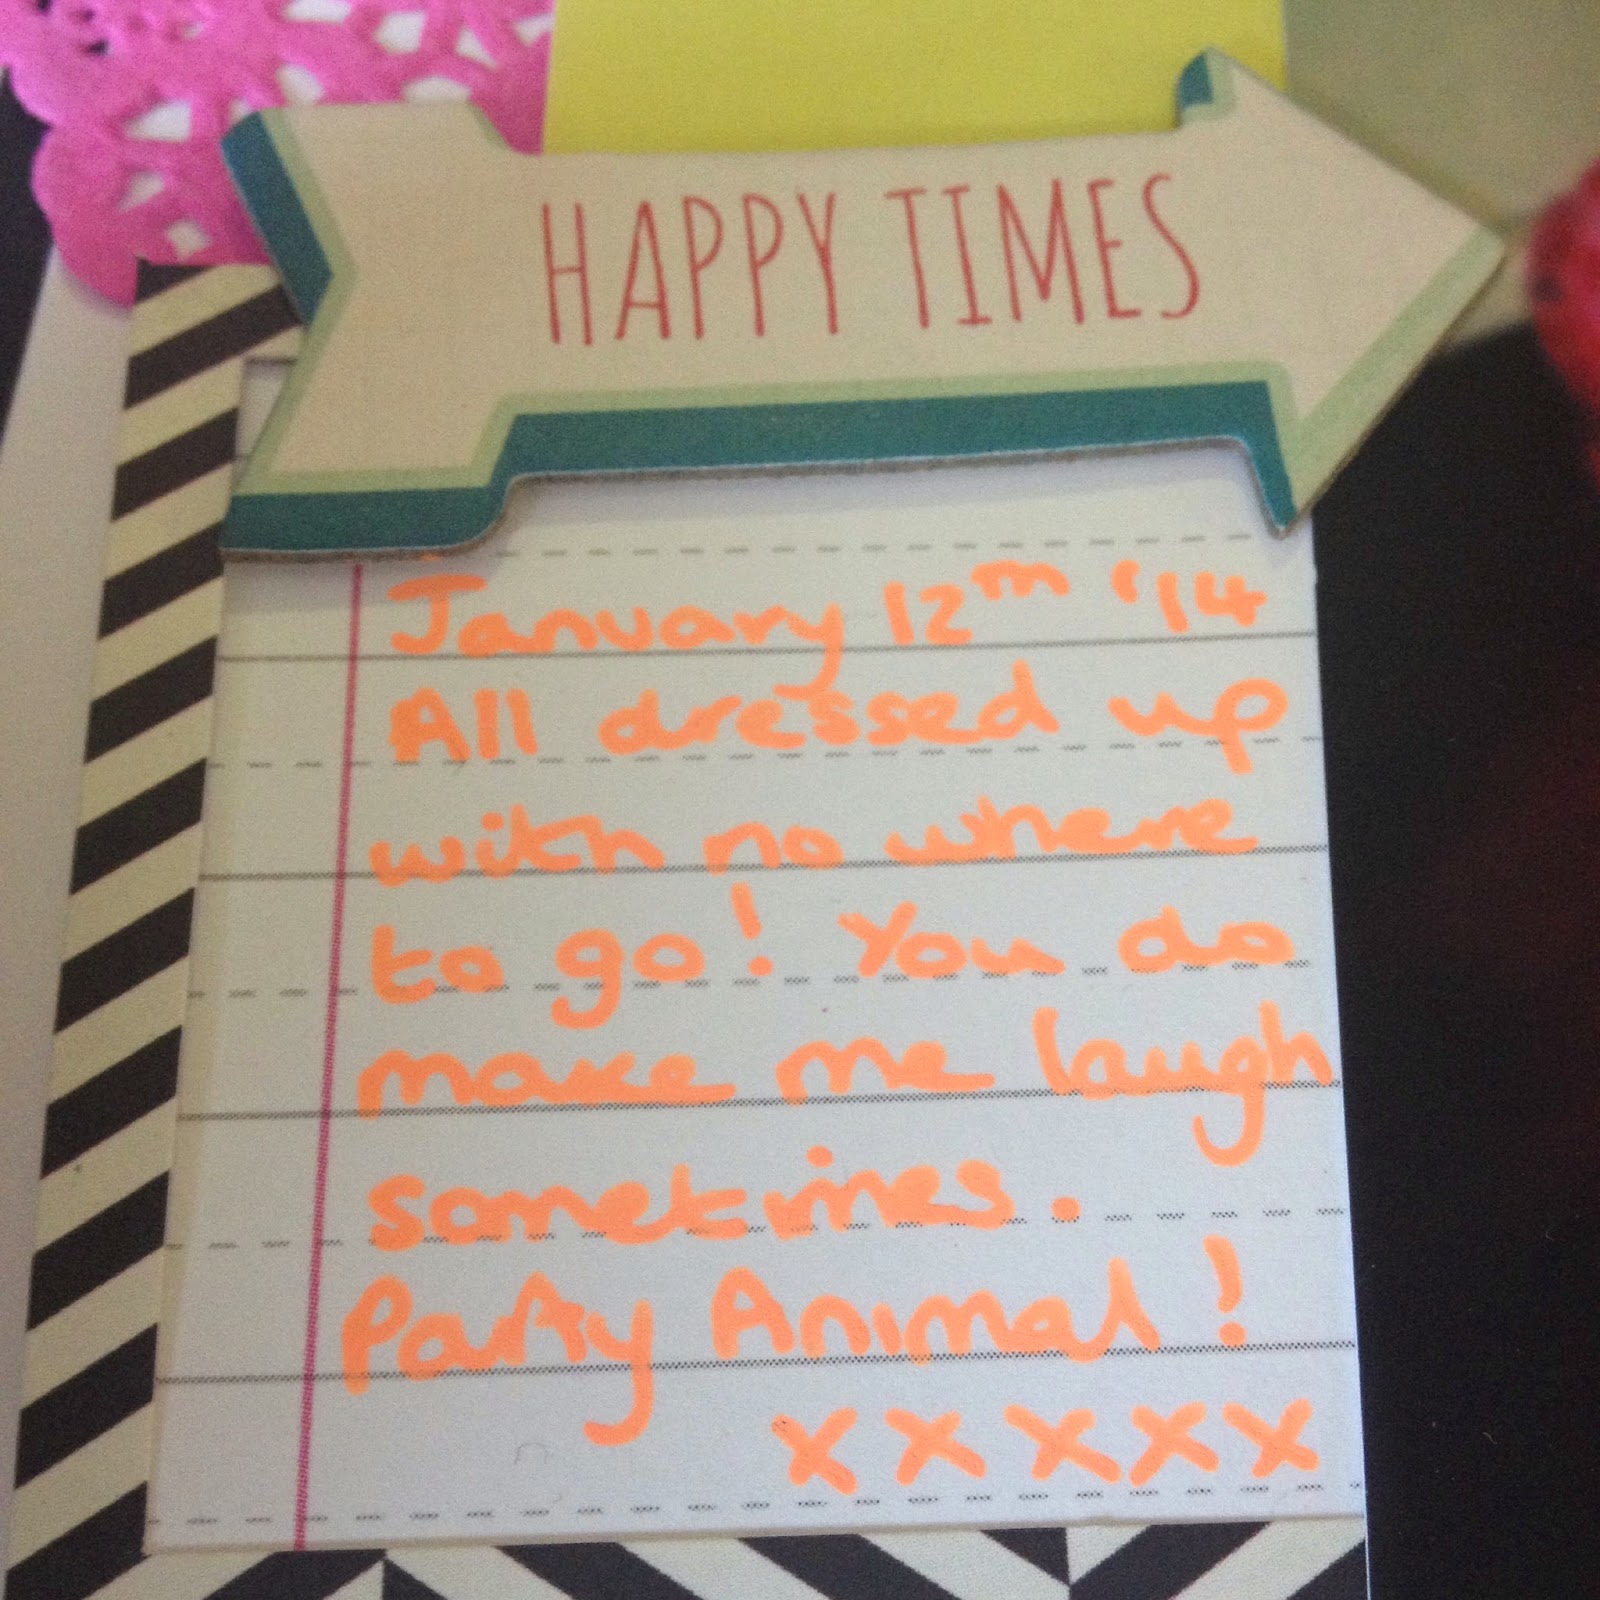 HAPPY TIMES
January 12th '14
All dressed up
with no where
to go! You do
make me laugh
sometimes.
Party Animal!
xxxxx